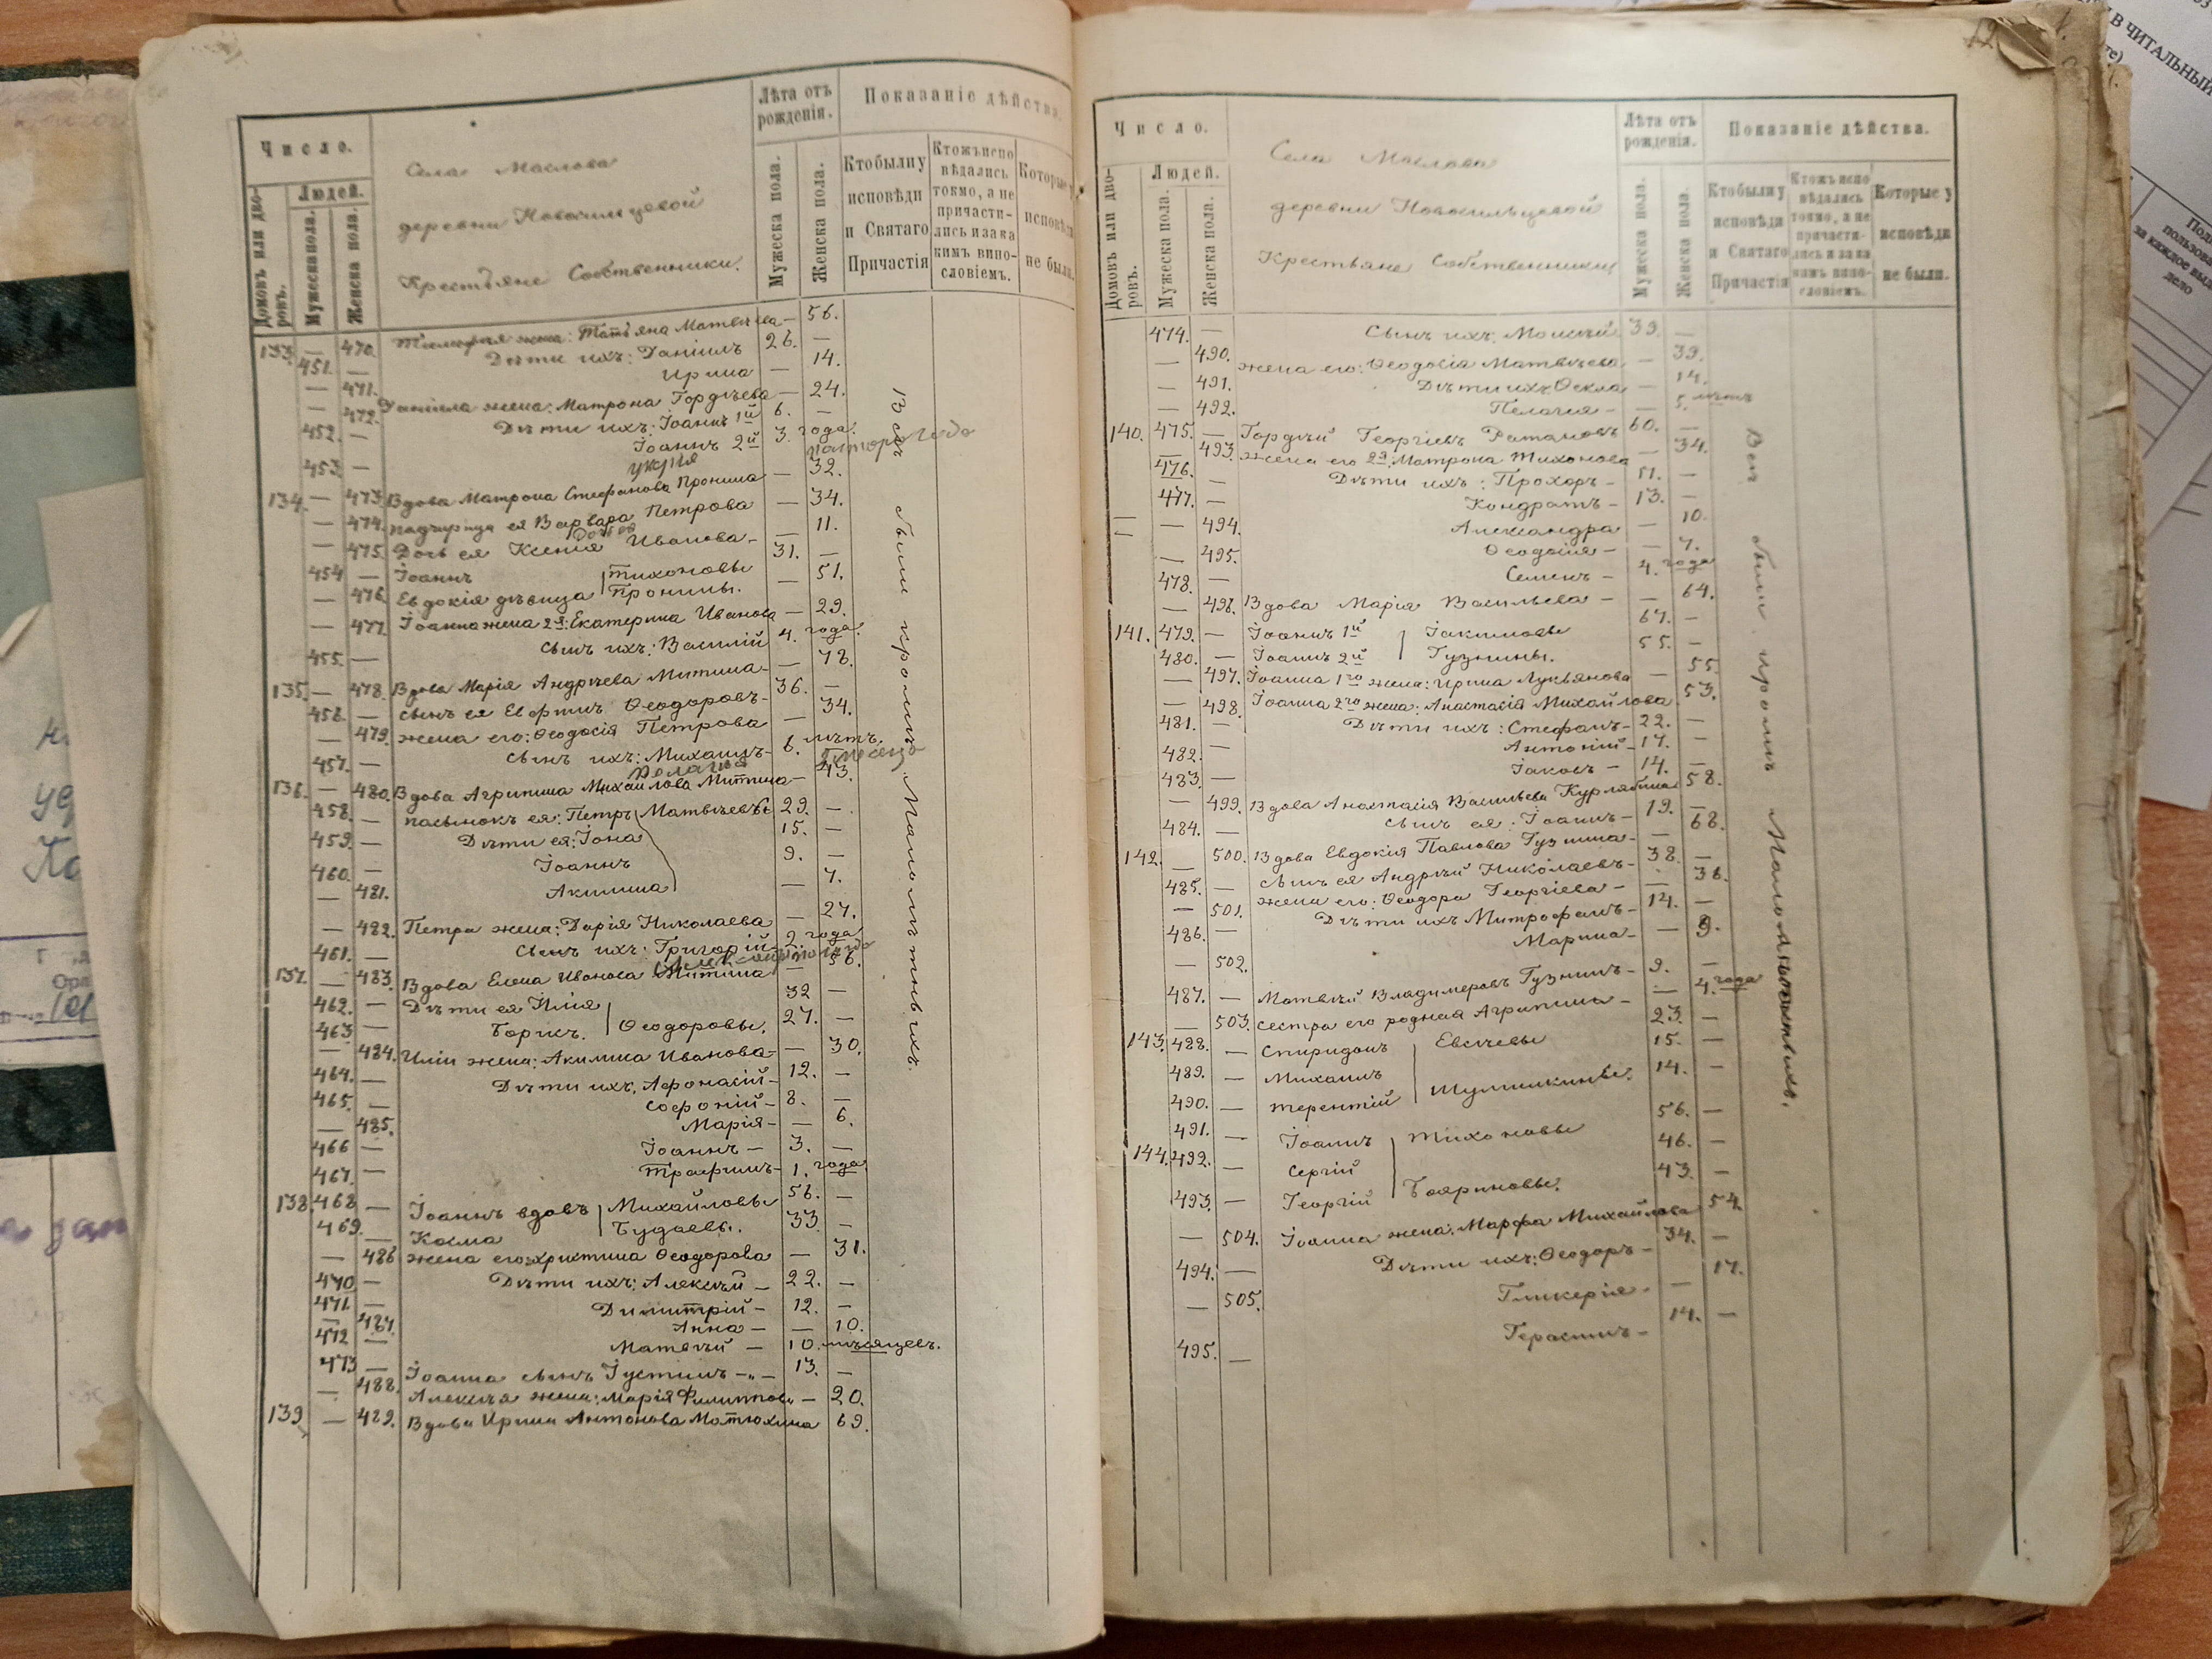 Число.
Домовъ или дворовъ.
Людей.
Мужеска пола.
Женска пола.
Села Маслова
деревни Новосильцевой
Крестьяне Собственники.
Лѣта отъ рожденія.
Мужеска пола.
Женска пола.
Показаніе дѣйства.
Кто были у исповѣди и Святаго Причастія
Кто жъ исповѣдались токмо, а не причастились и за какимъ винословіемъ.
Которые у исповѣди не были.
133. — 470. Тимофея жена: Татьяна Матвѣева — 56.
451. — Дѣти ихъ: Даніилъ 26. —
— 471. Ирина — 14.
— 472. Даніила жена: Матрона Гордѣева — 24.
452. — Дѣти ихъ: Іоаннъ 1й 6. —
453. — Іоаннъ 2й 3. года.
полтора года
134. — 473. Вдова Матрона Стефанова Пронина — 32.
— 474. падчерица ея Варвара Петрова — 34.
— 475. Дочь ея Ксенія Иванова — 11.
454 — Іоаннъ Тихоновы 31. —
— 476. Евдокія дѣвица Пронины. — 51.
— 477. Іоанна жена 2я: Екатерина Иванова — 29.
455. — Сынъ ихъ: Василій 4. года.
135. — 478. Вдова Марія Андрѣева Митина — 78.
456. — сынъ ея Евфтихъ Ѳеодоровъ — 36. —
— 479. жена его: Ѳеодосія Петрова — 34.
457. — сынъ ихъ: Михаилъ — 6. лѣтъ.
Пелагия
136. — 480. Вдова Агрипина Михайлова Митина — 43.
458. — пасынокъ ея: Петръ Матвѣевъ 29. —
459. — Дѣти ея: Іона 15. —
460. — Іоаннъ 9. —
— 481. Акилина — 7.
— 482. Петра жена: Дарія Николаева — 27.
461. — Сынъ ихъ: Григорій — 2. года
137. — 483. Вдова Елена Иванова Митина — 56.
462. — Дѣти ея Илія 32 —
463 — Борисъ. Ѳеодоровы. 27. —
— 484. Иліи жена: Акилина Иванова — 30.
464. — Дѣти ихъ, Афонасій — 12. —
465. — Софоній — 8. —
— 485. Марія — 6.
466 — Іоаннъ — 3. —
467. — Трофимъ — 1. года.
138. 468 — Іоаннъ вдовъ Михайловы 56. —
469. — Косма Будаевы. 33 —
— 486 жена его: Христина Ѳеодорова — 31.
470 — Дѣти ихъ: Алексѣй — 22. —
471. — Димитрій — 12. —
— 487. Анна — 10.
472 — Матвѣй — 10 мѣсяцевъ.
473 — Іоанна сынъ Іустинъ — 13. —
— 488. Алексѣя жена: Марія Филиппова — 20.
139 — 489. Вдова Ирина Антонова Матюхина 69.
Всѣ были кромѣ Малолѣтныхъ.
Число.
Домовъ или дворовъ.
Людей.
Мужеска пола.
Женска пола.
Села Маслова
деревни Новосильцевой
Крестьяне Собственники
Лѣта отъ рожденія.
Мужеска пола.
Женска пола
Показаніе дѣйства.
Кто были у исповѣди и Святаго Причастія
Кто жъ исповѣдались токмо, а не причастились и за какимъ винословіемъ.
Которые у исповѣди не были.
474. — Сынъ ихъ: Моисей 39. —
— 490. жена его: Ѳеодосія Матвѣева — 39.
— 491. Дѣти ихъ: Ѳекла — 14.
— 492. Пелагия — 5. лѣтъ
140. 475. — Гордѣй Георгіевъ 60. —
— 493. жена его 2я: Матрона Тихонова — 34.
476. — Дѣти ихъ: Прохоръ — 51. —
477. — Кондратъ — 13. —
— 494. Александра — 10.
— 495. Ѳеодосія — 7.
478. — Семенъ — 4. года
— 496. Вдова Марія Васильева — 64.
141. 479. — Іоаннъ 1й Іакимовы 67. —
480. — Іоаннъ 2й Гузнины. 55. —
— 497. Іоанна 1го жена: Ирина Лукьянова — 55.
— 498. Іоанна 2го жена: Анастасія Михайлова 53.
481. — Дѣти ихъ: Стефанъ — 22. —
482. — Антоній — 17. —
483. — Іаковъ — 14. —
— 499. Вдова Анастасія Васильева Курлябина 58.
484. — сынъ ея: Іоаннъ — 19. —
142. — 500. Вдова Евдокія Павлова Гузнина — 68.
485. — сынъ ея Андрѣй Николаевъ — 38. —
— 501. жена его: Ѳеодора Георгіева — 36.
486. — Дѣти ихъ Митрофанъ — 14. —
— 502. Марина — 9.
487. — Матвѣй Владимеровъ Гузнинъ — 9. —
— 503. сестра его родная Агрипина — 4. года
143. 488. — Спиридонъ Евсѣевы 23. —
489. — Михаилъ 15. —
490. — Терентій Шумилкины. 14. —
491. — Іоаннъ Тихоновы 56. —
144. 492. — Сергій 46. —
493. — Георгій Бояриновы. 43. —
— 504. Іоанна жена: Марфа Михайлова 54.
494. — Дѣти ихъ: Ѳеодоръ — 34. —
— 505. Гликерія — 17.
495. — Герасимъ — 14. —
Всѣ были кромѣ Малолѣтныхъ.